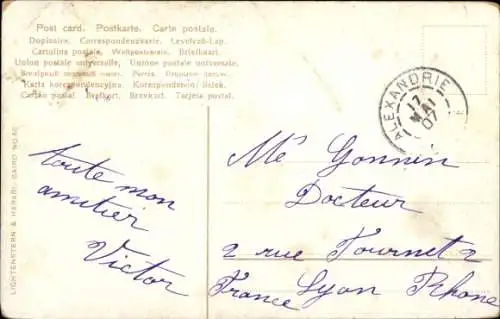 Post card. Postkarte. Carte postale.
Dopisnice. Correspondenzkarte. Levelező-Lap.
Cartolina postale. Weltpostverein. Briefkaart.
Union postale universelle, Unione postale universale.
Karta korespondencyjna. Korespondenční lístek.
Cartão postal. Brefkort. Brevkort. Tarjeta postal.
ALEXANDRIE
17
MAI
07
LICHTENSTERN & HARARI, CAIRO NO.
toute mon
amitier
Victor
Mr Gonnin
Docteur
2 rue Tournet 2
France Lyon Rhone